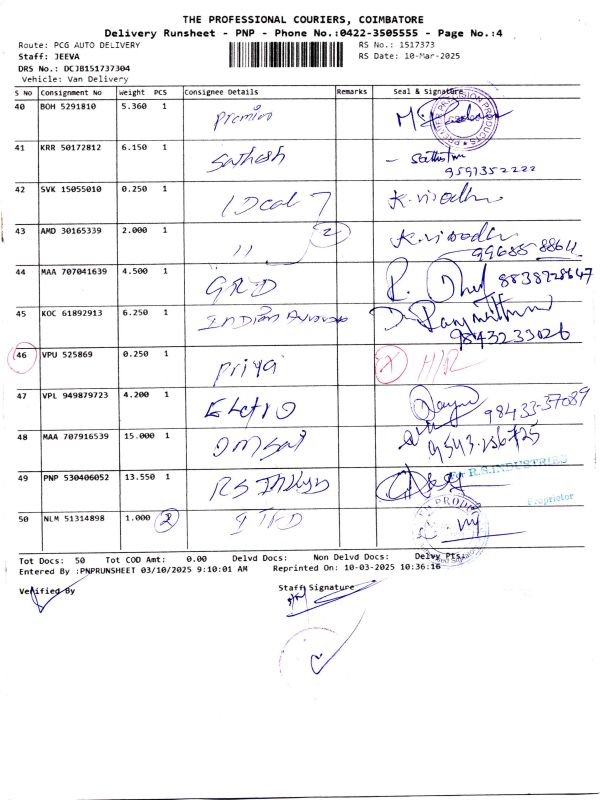 THE PROFESSIONAL COURIERS, COIMBATORE
Delivery Runsheet - PNP - Phone No.:0422-3505555 - Page No.:4
Route: PCG AUTO DELIVERY RS No.: 1517373
Staff: JEEVA RS Date: 10-Mar-2025
DRS No.: DCJB151737304
Vehicle: Van Delivery
S NO Consignment No Weight PCS Consignee Details Remarks Seal & Signature
40 BOH 5291810 5.360 1 Premier
41 KRR 50172812 6.150 1 Sathesh
9591352222
42 SVK 15055010 0.250 1 K. Vinodh
43 AMD 30165339 2.000 1 11 2 K. Vinodh
99685 8864
44 MAA 707041639 4.500 1 GRD 8838728647
45 KOC 61892913 6.250 1
98432 33026
46 VPU 525869 0.250 1 Priya X H/R
47 VPL 949879723 4.200 1 Eletro 98433-37089
48 MAA 707916539 15.000 1
49 PNP 530406052 13.550 1 RS
For R.S. INDUSTRIES
Proprietor
50 NLM 51314898 1.000 2
Tot Docs: 50 Tot COD Amt: 0.00 Delvd Docs: Non Delvd Docs: Delvy Pts.
Entered By :PNPRUNSHEET 03/10/2025 9:10:01 AM Reprinted On: 10-03-2025 10:36:16
Verified By Staff Signature